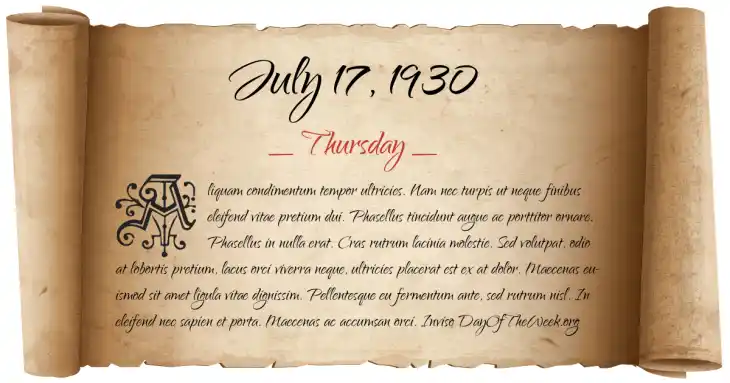 July 17, 1930
Thursday
Aliquam condimentum tempor ultricies. Nam nec turpis ut neque finibus
eleifend vitae pretium dui. Phasellus tincidunt augue ac porttitor ornare.
Phasellus in nulla erat. Cras rutrum lacinia molestie. Sed volutpat, odio
at lobortis pretium, lacus orci viverra neque, ultricies placerat est ex at dolor. Maecenas eu-
ismod sit amet ligula vitae dignissim. Pellentesque eu fermentum ante, sed rutrum nisl. In
eleifend nec sapien et porta. Maecenas ac accumsan orci. Inviso DayOfTheWeek.org